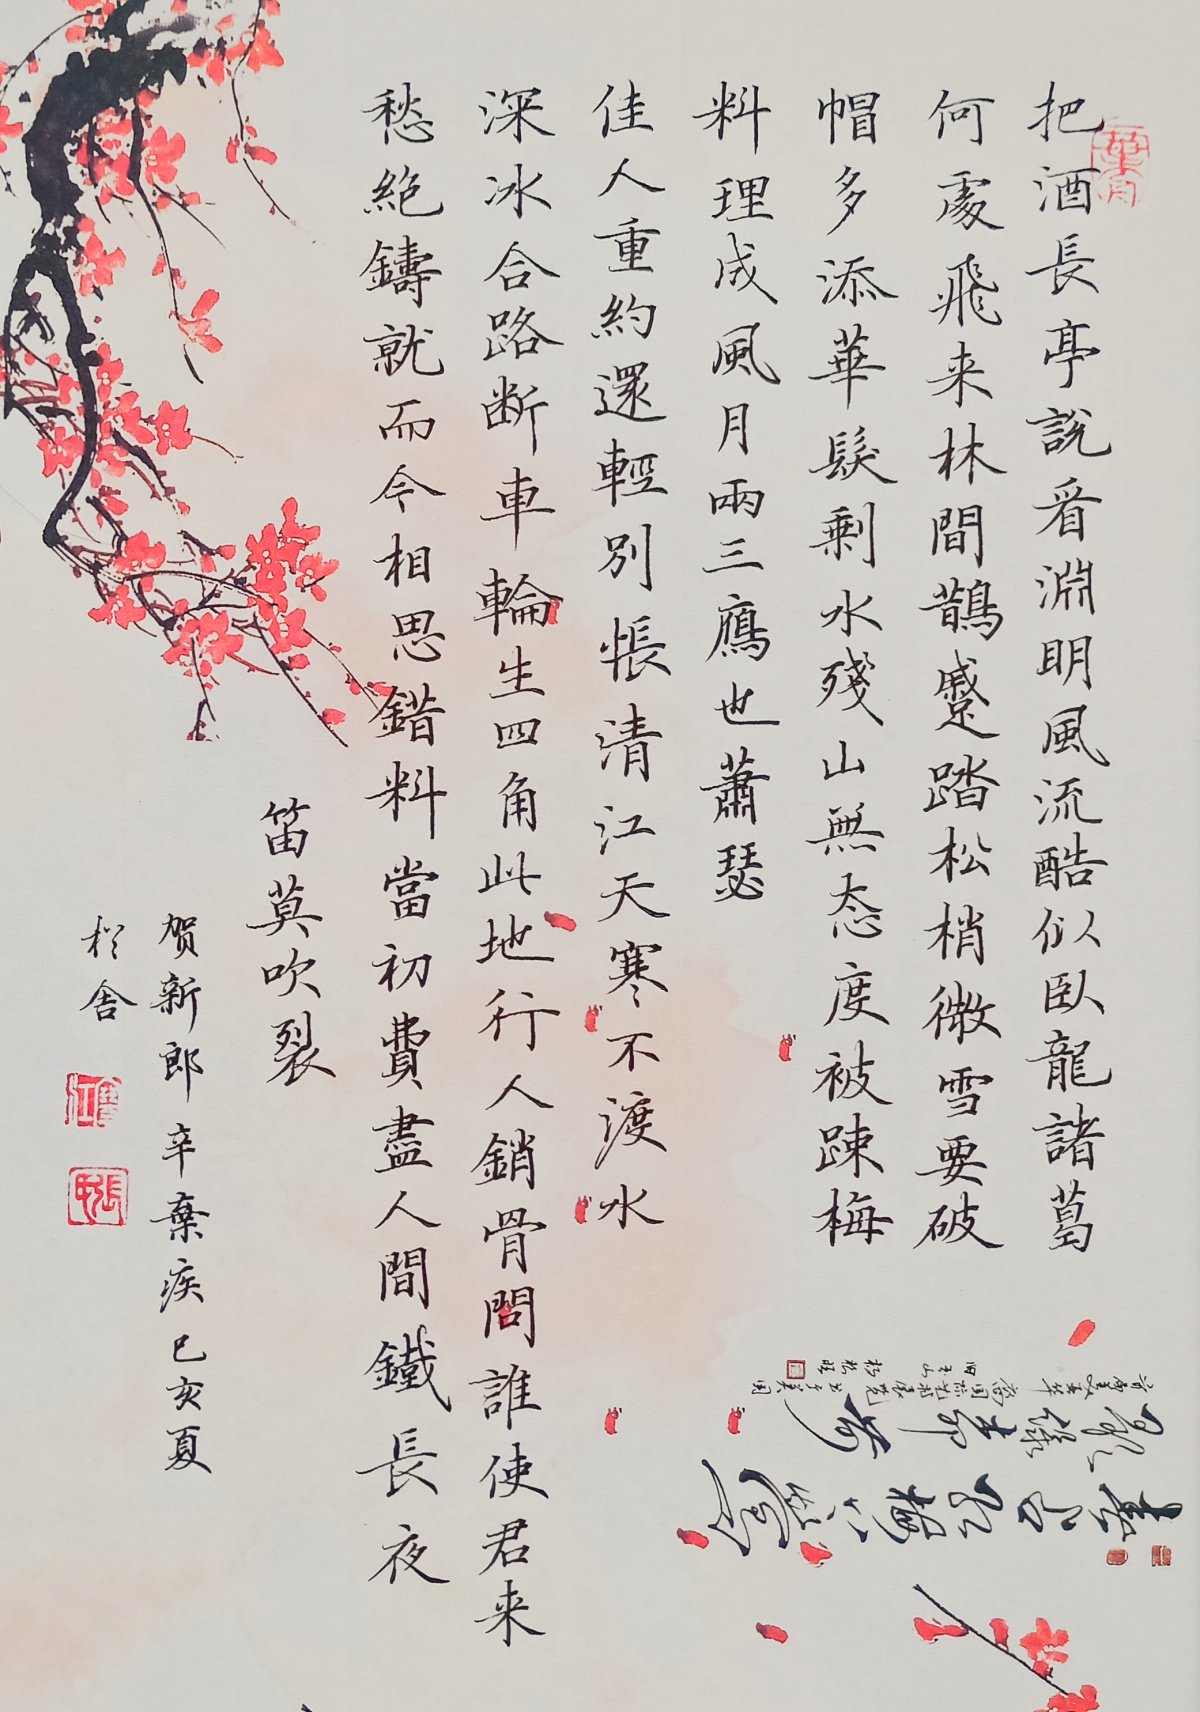 把酒長亭說看淵明風流酷似臥龍諸葛
何處飛来林間鵲蹙踏松梢微雪要破
帽多添華髮剩水殘山無态度被踈梅
料理成風月兩三鴈也蕭瑟
佳人重約還輕別悵清江天寒不渡水
深冰合路断車輪生四角此地行人銷骨問誰使君来
愁絕鑄就而今相思錯料當初費盡人間鐵長夜
笛莫吹裂
贺新郎辛棄疾己亥夏
舍